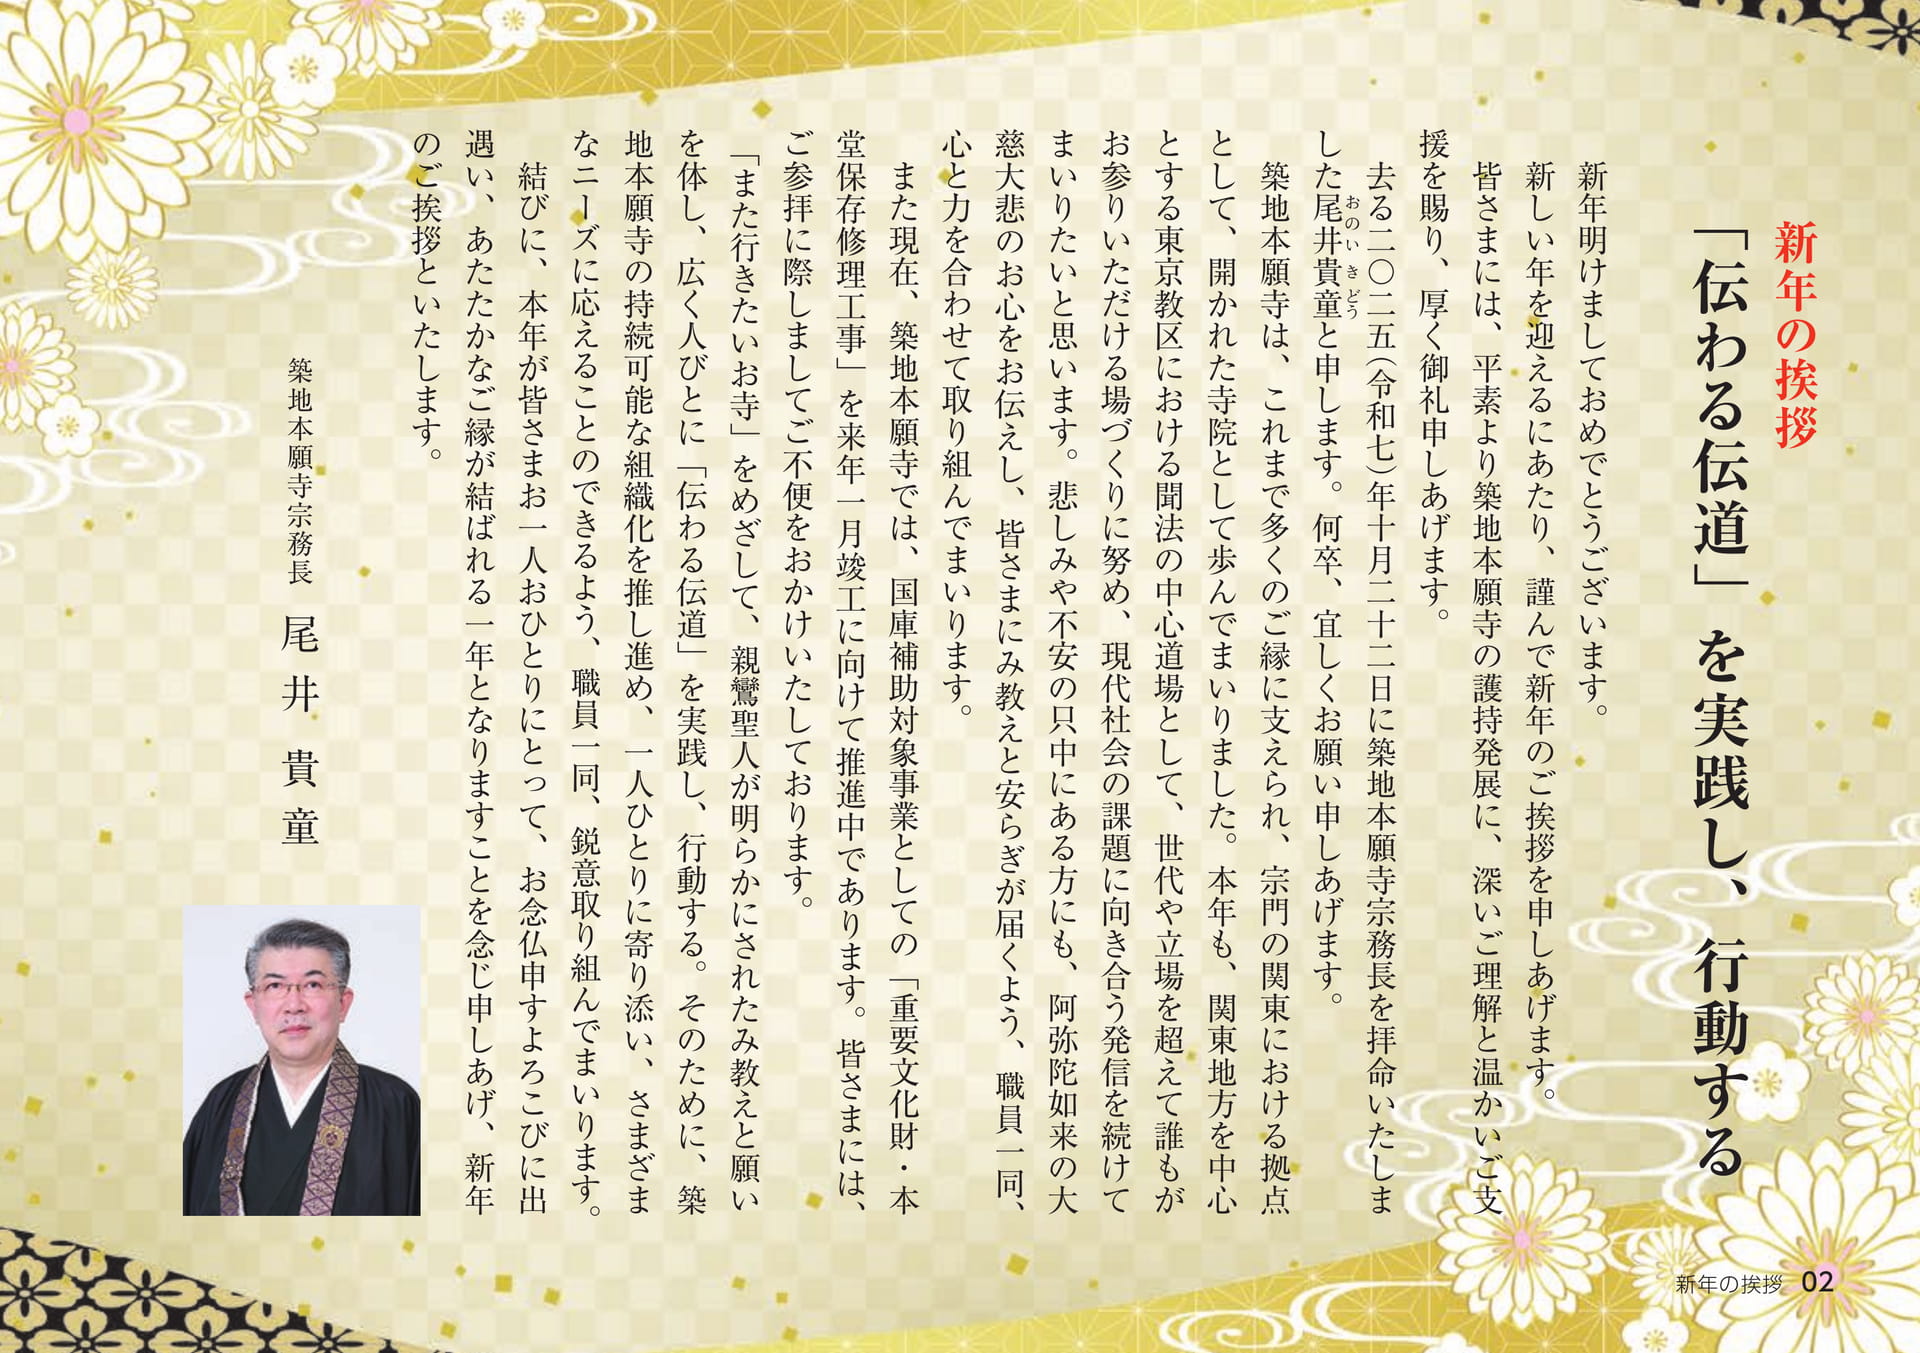 新年の挨拶
「伝わる伝道」を実践し、行動する
新年明けましておめでとうございます。
新しい年を迎えるにあたり、謹んで新年のご挨拶を申しあげます。
皆さまには、平素より築地本願寺の護持発展に、深いご理解と温かいご支
援を賜り、厚く御礼申しあげます。
去る二〇二五(令和七)年十月二十二日に築地本願寺宗務長を拝命いたしま
した尾井貴童と申します。何卒、宜しくお願い申しあげます。
おのいきどう
築地本願寺は、これまで多くのご縁に支えられ、宗門の関東における拠点
として、開かれた寺院として歩んでまいりました。本年も、関東地方を中心
とする東京教区における聞法の中心道場として、世代や立場を超えて誰もが
お参りいただける場づくりに努め、現代社会の課題に向き合う発信を続けて
まいりたいと思います。悲しみや不安の只中にある方にも、阿弥陀如来の大
慈大悲のお心をお伝えし、皆さまにみ教えと安らぎが届くよう、職員一同、
心と力を合わせて取り組んでまいります。
また現在、築地本願寺では、国庫補助対象事業としての「重要文化財・本
堂保存修理工事」を来年一月竣工に向けて推進中であります。皆さまには、
ご参拝に際しましてご不便をおかけいたしております。
「また行きたいお寺」をめざして、親鸞聖人が明らかにされたみ教えと願い
を体し、広く人びとに「伝わる伝道」を実践し、行動する。そのために、築
地本願寺の持続可能な組織化を推し進め、一人ひとりに寄り添い、さまざま
なニーズに応えることのできるよう、職員一同、鋭意取り組んでまいります。
結びに、本年が皆さまお一人おひとりにとって、お念仏申すよろこびに出
遇い、あたたかなご縁が結ばれる一年となりますことを念じ申しあげ、新年
のご挨拶といたします。
築地本願寺宗務長 尾井 貴童
新年の挨拶 02